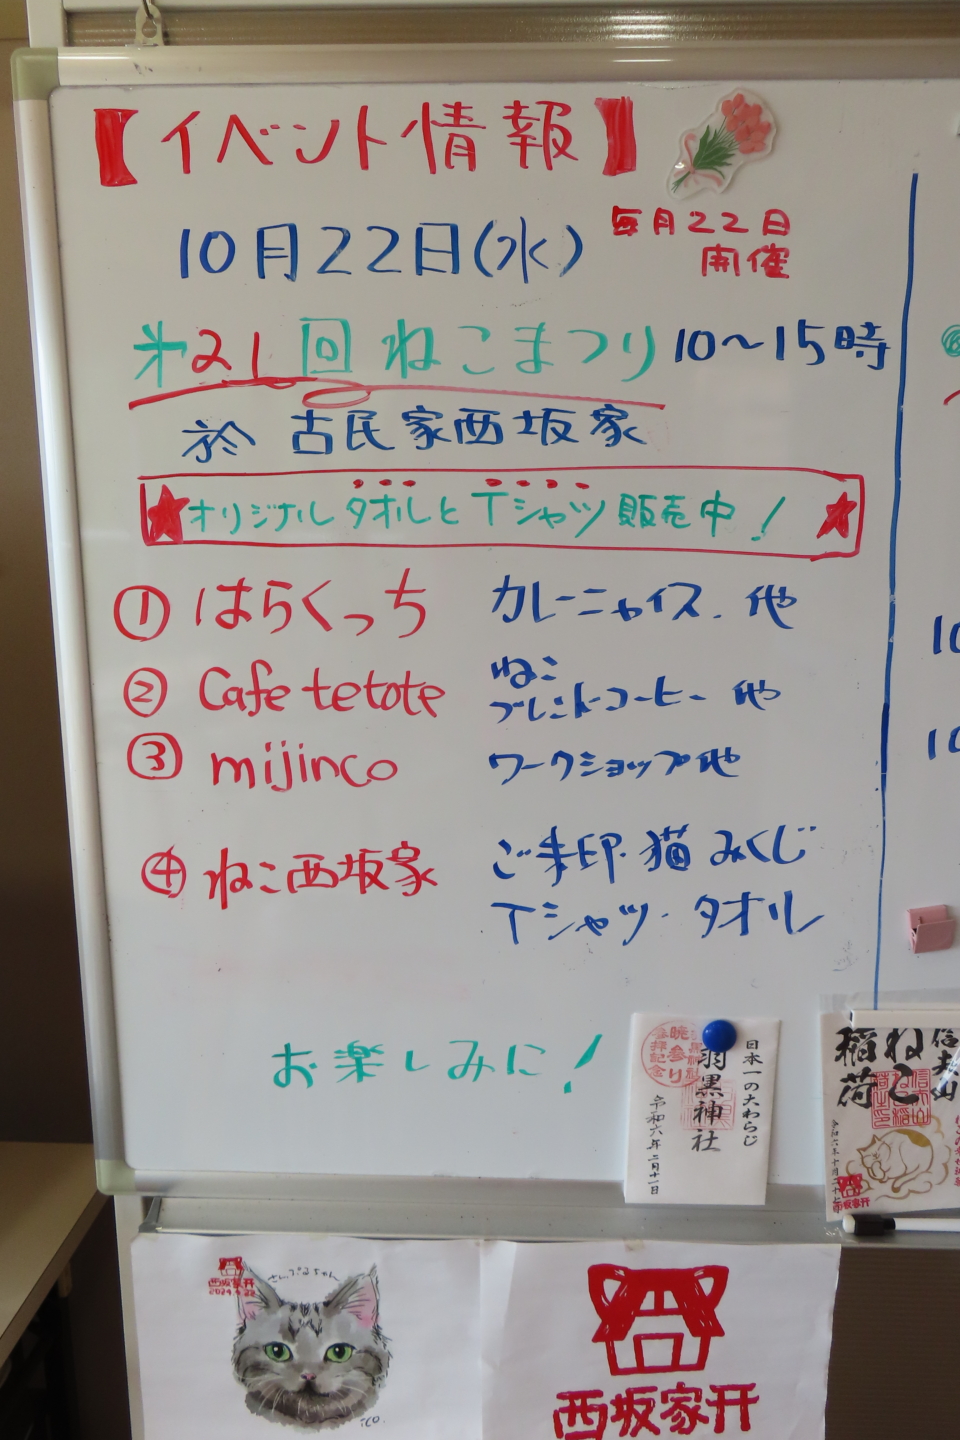 【イベント情報】
10月22日(水)
毎月22日
開催
第21回 ねこまつり 10〜15時
於 古民家西坂家
★オリジナルタオルとTシャツ販売中！★
① はらくっち カレーニャイス. 他
② Cafe tetote ねこ
ブレンドコーヒー 他
③ mijinco ワークショップ他
④ ねこ西坂家 ご朱印・猫みくじ
Tシャツ・タオル
お楽しみに！
10
10
日本一の大わらじ
羽黒神社
暁参り
参拝記念
令和六年二月十一日
信夫山
ねこ
稲荷
西坂家
さんぷるちゃん
西坂家
2024.4.22
ico.
西坂家